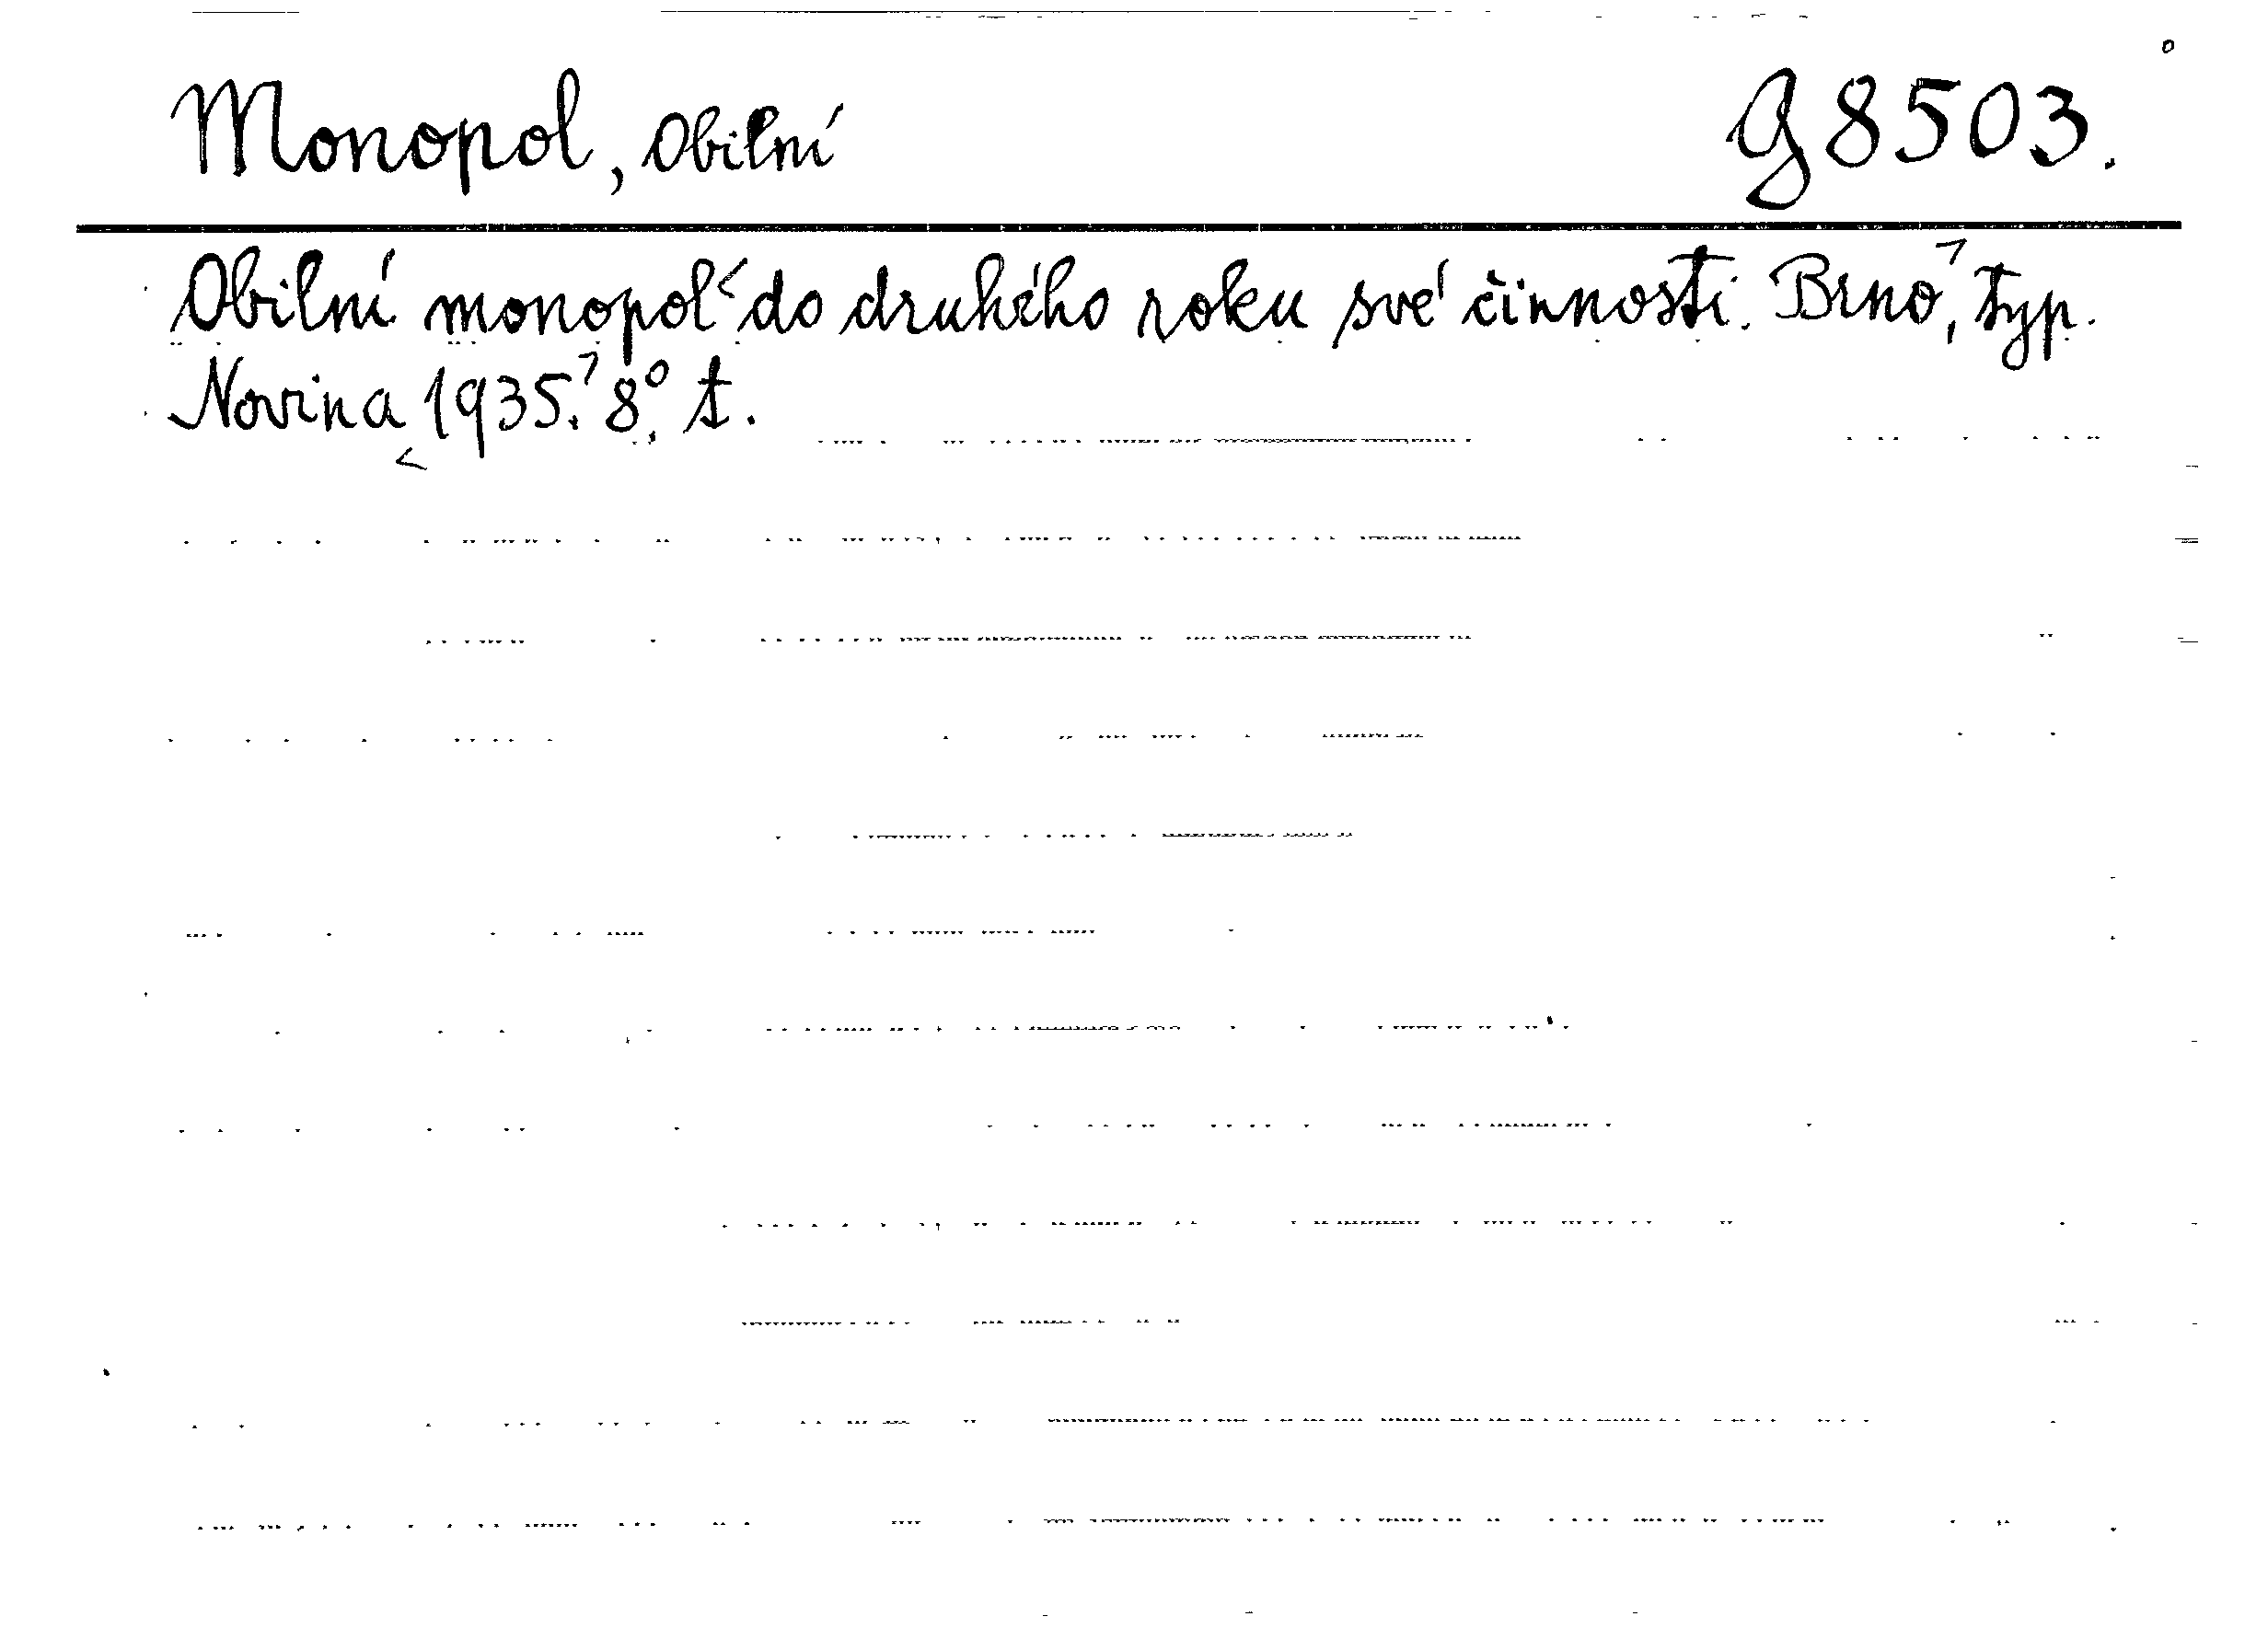 Monopol, Obilní G 8503.
Obilní monopol do druhého roku své činnosti. Brno, typ.
Novina 1935. 8°. t.